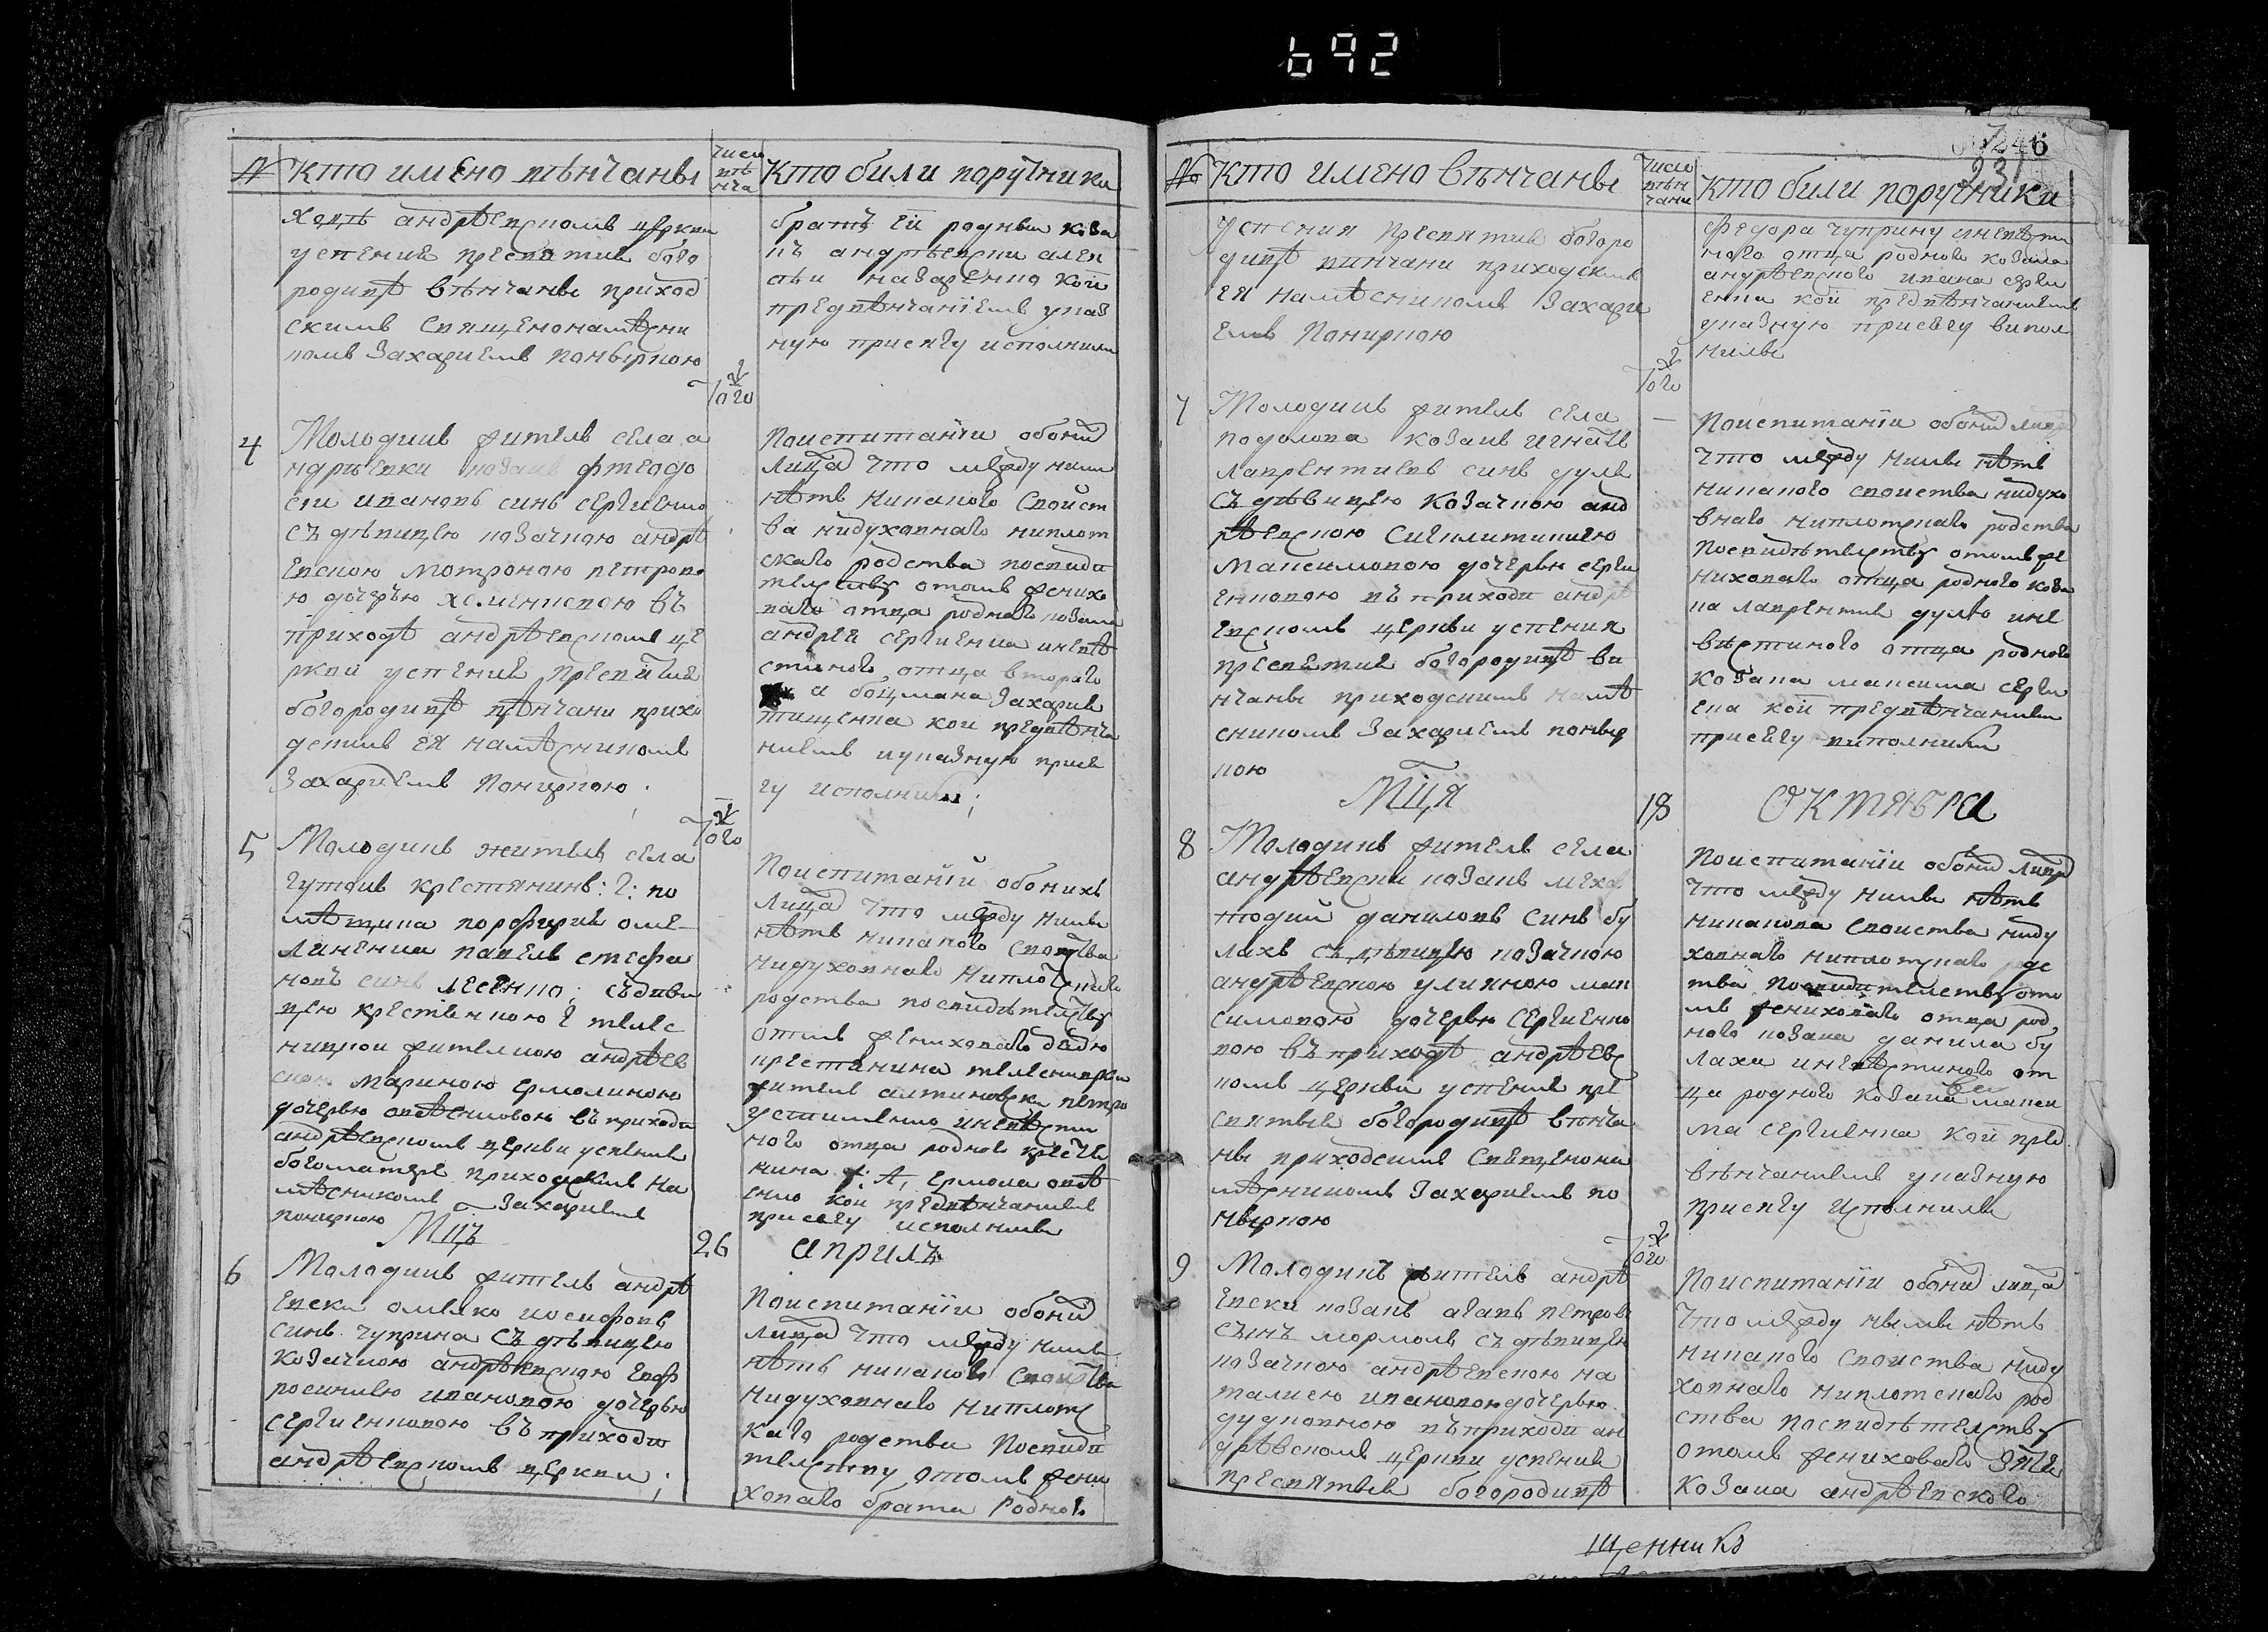 692
№ Кто имѣно вѣнчаны
число вѣнча
Кто били поручники
ходѣ андрѣевском церкви
успения пресвятия бого
родицѣ вѣнчаны приход
скимъ священонамѣсни
комъ Захариемъ
Того
братъ ей родным коза
къ андрѣевски алек
сѣи назаренко кои
предвѣнчаниемъ указ
ную присягу исполнили
4
Молодикъ жителъ села а
ндрѣевки козакъ феодо
сии ивановъ синъ сергиенко
съ дѣвицею козачкою андрѣ
евскою мотроною петрово
ю дочерью хоменковою въ
приходѣ андрѣевскомъ це
ркви успения пресвятия
богородицѣ вѣнчани прихо
дскимъ ея намѣсникомъ
Захариемъ
Того
Поиспитании обоихъ
лицъ что между ними
нѣтъ никакого свойст
ва нидуховнаго ниплот
скаго родства посвиди
телству отомъ женихо
ваго отца роднаго козака
андрея сергиенка иневѣ
стиного отца втораго
а боцмана Захария
тищенка кои предвѣнча
ниемъ иуказную прися
гу исполнили;
5
Молодикъ житель села
гутокъ крестянинъ: г: по
мѣщика порфирия оме
лияненка павелъ стефа
новъ синъ лесенко; съдѣви
цею крестянкою г телес
ницкои жителкою андрѣев
скою мариною ермолиною
дочерью въ приходи
андрѣевскомъ церкви успения
богоматере приходскимъ на
мѣсникомъ Захариемъ
Мцъ
26
априлъ
Поиспитании обоихъ
лицъ что между ними
нѣтъ никакого свойства
нидуховнаго ниплотскаго
родства посвидѣтелству
отомъ жениховаго дядю
крестянина
жителя алтиновки петро
устименко иневѣсти
ного отца родного крестя
нина ермола
енко кои предвѣнчаниемъ
присягу исполнили
6
Молодикъ житель андрѣ
евски омелко иосифовъ
синъ чуприна съ дѣвицею
козачкою андрѣевскою евф
росиниею ивановою дочерью
сергиенковою въ приходи
андрѣевскомъ церкви;
Поиспитании обоихъ
лицъ что между ними
нѣтъ никакого свойства
нидуховнаго ниплотс
каго родства посвиди
телству отомъ жени
ховаго брата родного
6
231
№ Кто имено вѣнчаны
Число вѣнчани
Кто били поручники
успения пресвятия богоро
дицѣ винчани приходскимъ
ея намѣсникомъ Захари
емъ
Того
федора чуприну иневѣсти
ного отца родного козака
андрѣевского ивана серги
енка кои предвѣнчаниемъ
указную присягу випол
нили
7
Молодикъ житель села
подолова козакъ игнатъ
лаврентиевъ синъ дуля
съ дѣвицею козачкою анд
рѣевскою
максимовою дочерью серги
енковою въ приходи андрѣ
евскомъ церкви успения
пресвятия богородицѣ ви
нчаны приходскимъ намѣ
сникомъ Захариемъ
Поиспитании обоихъ лицъ
что между ними нѣтъ
никакого своиства нидухо
внаго ниплотскаго родства
посвидѣтелству отомъ же
нихованого отца родного коза
ка лаврентия дулю ине
вѣстиного отца родного
козака максима серги
енка кои предвѣнчаниемъ
присягу виполнили
Мца
18
октявра
8
Молодикъ житель села
андрѣевки козакъ мехо
тодий даниловъ синъ бу
лахъ съ дѣвицею козачкою
андрѣевскою улияною мак
симовою дочерью сергиенко
вою въ приходѣ андрѣевс
комъ церкви успения пре
святыя богородицѣ вѣнча
ны приходскимъ священона
мѣсникомъ Захариемъ
Поиспитании обоихъ лицъ
что между ними нѣтъ
никакова своиства ниду
ховнаго ниплотскаго родс
тва посвидителству ото
мъ жениховаго отца род
ного козака данила бу
лаха иневѣстиного от
ца родного козака макси
ма сергиенка кои пред
вѣнчаниемъ указную
присягу исполнили
Того
9
Молодикъ житель андрѣ
евски козакъ агапъ петровъ
сынъ мормоль съ дѣвицею
козачкою андрѣевскою на
талиею ивановою дочерью
дудковною въ приходи ан
дрѣевскомъ церкви успения
пресвятыя богородицѣ
Поиспитании обоихъ лица
что между ними нѣтъ
никакого своиства ниду
ховнаго ниплотскаго род
ства посвидѣтелству
отомъ жениховаго зятя
козака андрѣевского
щенникъ